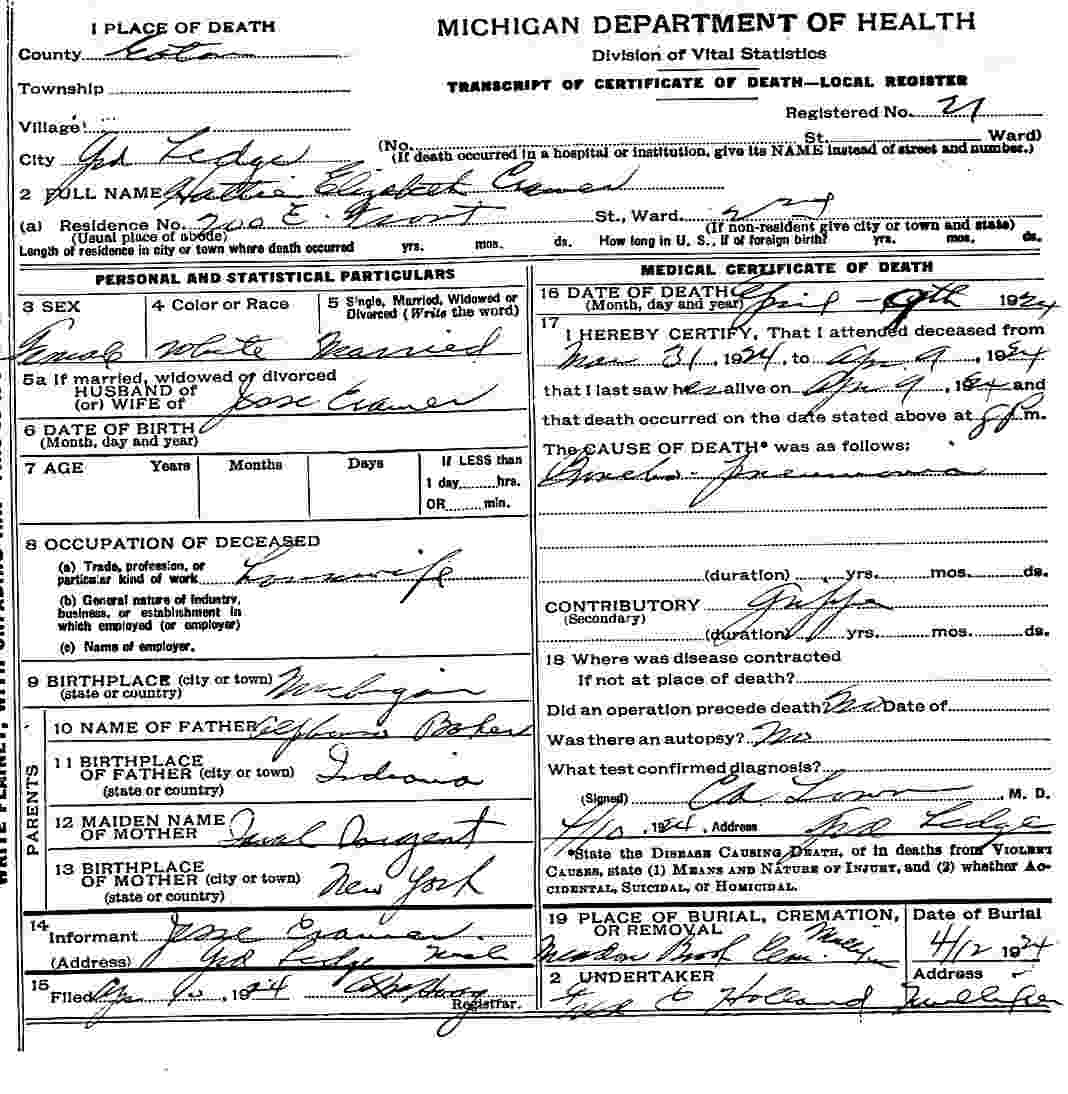 1 PLACE OF DEATH
MICHIGAN DEPARTMENT OF HEALTH
County Eaton
Division of Vital Statistics
Township
TRANSCRIPT OF CERTIFICATE OF DEATH—LOCAL REGISTER
Registered No.
Village
(No. St. Ward)
City Grd Ledge
(If death occurred in a hospital or institution, give its NAME instead of street and number.)
2 FULL NAME Hattie Elizabeth Cramer
(a) Residence No. 200 E. Front St., Ward.
(Usual place of abode) (If non-resident give city or town and state)
Length of residence in city or town where death occurred yrs. mos. ds. How long in U. S., if of foreign birth? yrs. mos. ds.
PERSONAL AND STATISTICAL PARTICULARS
3 SEX 4 Color or Race 5 Single, Married, Widowed or Divorced (Write the word)
Female White Married
5a If married, widowed or divorced
HUSBAND of
(or) WIFE of Jesse Cramer
6 DATE OF BIRTH
(Month, day and year)
7 AGE Years Months Days If LESS than
1 day hrs.
OR min.
8 OCCUPATION OF DECEASED
(a) Trade, profession, or
particular kind of work Housewife
(b) General nature of industry,
business, or establishment in
which employed (or employer)
(c) Name of employer.
9 BIRTHPLACE (city or town) Michigan
(state or country)
PARENTS
10 NAME OF FATHER Alphonso Baker
11 BIRTHPLACE
OF FATHER (city or town) Indiana
(state or country)
12 MAIDEN NAME
OF MOTHER Sargent
13 BIRTHPLACE
OF MOTHER (city or town) New York
(state or country)
14
Informant Jesse Cramer.
(Address) Grd Ledge Mich
15
Filed Apr 10, 1924
Registrar.
MEDICAL CERTIFICATE OF DEATH
16 DATE OF DEATH April - 9th 1924
(Month, day and year)
17
I HEREBY CERTIFY, That I attended deceased from
Mar 31, 1924, to Apr 9, 1924
that I last saw her alive on Apr 9, 1924 and
that death occurred on the date stated above at 8 P m.
The CAUSE OF DEATH* was as follows:
Broncho-Pneumonia
(duration) yrs. mos. ds.
CONTRIBUTORY Grippe
(Secondary)
(duration) yrs. mos. ds.
18 Where was disease contracted
If not at place of death?
Did an operation precede death? No Date of
Was there an autopsy? No
What test confirmed diagnosis?
(Signed) M. D.
4/10, 1924, Address Grd Ledge
*State the DISEASE CAUSING DEATH, or in deaths from VIOLENT
CAUSES, state (1) MEANS AND NATURE OF INJURY, and (2) whether AC-
CIDENTAL, SUICIDAL, OR HOMICIDAL.
19 PLACE OF BURIAL, CREMATION,
OR REMOVAL
Date of Burial
Meadow Brook Cem.
4/12 1924
2 UNDERTAKER
Address
Holland